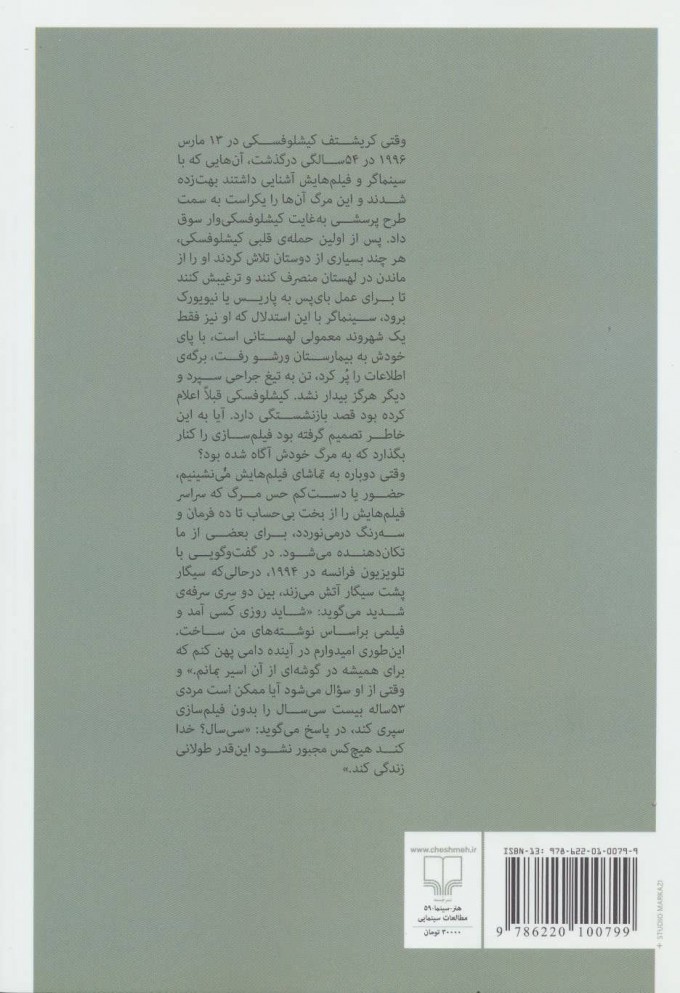 وقتی کریشتف کیشلوفسکی در ۱۳ مارس
۱۹۹۶ در ۵۴سالگی درگذشت، آن‌هایی که با
سینماگر و فیلم‌هایش آشنایی داشتند بهت‌زده
شدند و این مرگ آن‌ها را یکراست به سمت
طرح پرسشی به‌غایت کیشلوفسکی‌وار سوق
داد. پس از اولین حمله‌ی قلبی کیشلوفسکی،
هر چند بسیاری از دوستان تلاش کردند او را از
ماندن در لهستان منصرف کنند و ترغیبش کنند
تا برای عمل بای‌پس به پاریس یا نیویورک
برود، سینماگر با این استدلال که او نیز فقط
یک شهروند معمولی لهستانی است، با پای
خودش به بیمارستان ورشو رفت، برگه‌ی
اطلاعات را پُر کرد، تن به تیغ جراحی سپرد و
دیگر هرگز بیدار نشد. کیشلوفسکی قبلاً اعلام
کرده بود قصد بازنشستگی دارد. آیا به این
خاطر تصمیم گرفته بود فیلم‌سازی را کنار
بگذارد که به مرگ خودش آگاه شده بود؟
وقتی دوباره به تماشای فیلم‌هایش می‌نشینیم،
حضور یا دست‌کم حس مرگ که سراسر
فیلم‌هایش را از بخت بی‌حساب تا ده فرمان و
سه‌رنگ درمی‌نوردد، برای بعضی از ما
تکان‌دهنده می‌شود. در گفت‌وگویی با
تلویزیون فرانسه در ۱۹۹۴، درحالی‌که سیگار
پشت سیگار آتش می‌زند، بین دو سِری سرفه‌ی
شدید می‌گوید: «شاید روزی کسی آمد و
فیلمی براساس نوشته‌های من ساخت.
این‌طوری امیدوارم در آینده دامی پهن کنم که
برای همیشه در گوشه‌ای از آن اسیر بمانم.» و
وقتی از او سؤال می‌شود آیا ممکن است مردی
۵۳ساله بیست سی‌سال را بدون فیلم‌سازی
سپری کند، در پاسخ می‌گوید: «سی‌سال؟ خدا
کند هیچ‌کس مجبور نشود این‌قدر طولانی
زندگی کند.»
www.cheshmeh.ir
نشر چشمه
هنر-سینما-۵۹
مطالعات سینمایی
۳۰۰۰۰ تومان
ISBN-13: 978-622-01-0079-9
9 786220 100799
+ STUDIO MARKAZI